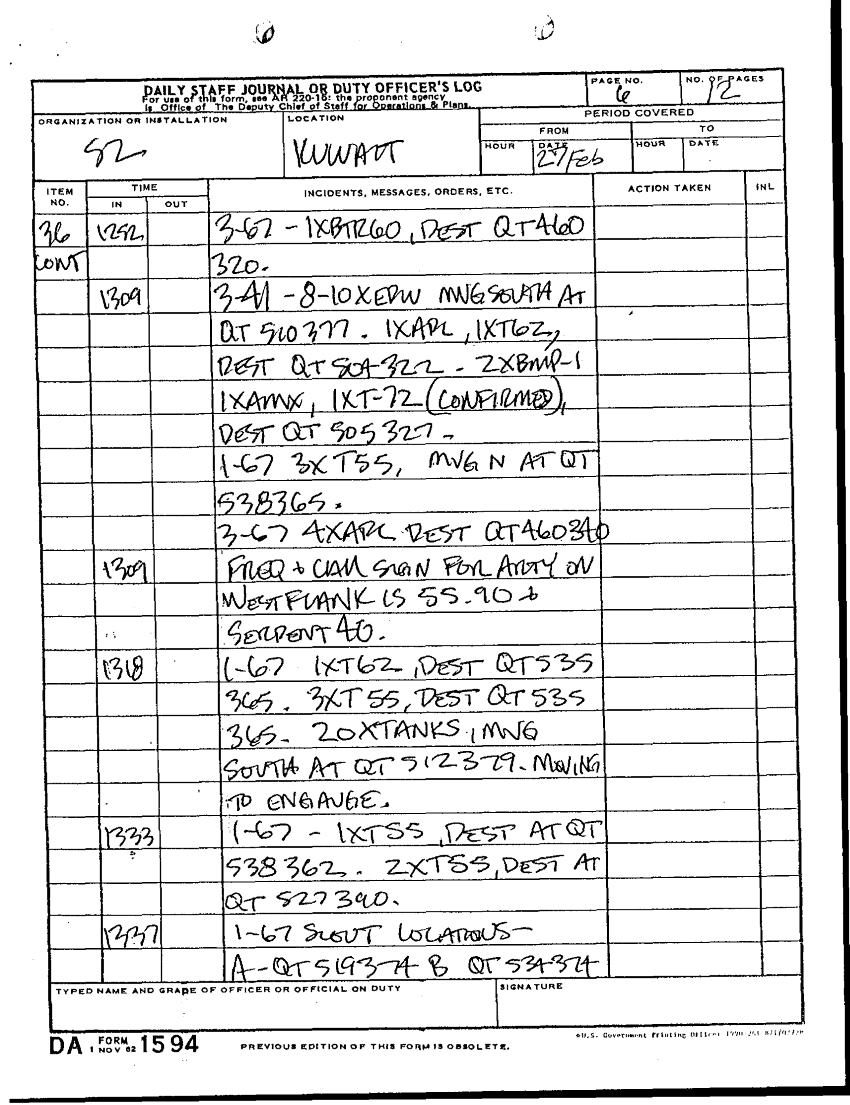 DAILY STAFF JOURNAL OR DUTY OFFICER'S LOG
For use of this form, see AR 220-15; the proponent agency
is Office of The Deputy Chief of Staff for Operations & Plans.
PAGE NO.
6
NO. OF PAGES
12
ORGANIZATION OR INSTALLATION
S2
LOCATION
KUWAIT
PERIOD COVERED
FROM
TO
HOUR
DATE
27 Feb
HOUR
DATE
ITEM NO.
TIME
IN
OUT
INCIDENTS, MESSAGES, ORDERS, ETC.
ACTION TAKEN
INL
36 1252 3-67 - 1XBTR60, DEST QT460
CONT 320.
1309 3-41 - 8-10XEPW MVG SOUTH AT
QT 510377. 1XAPC, 1XT62,
DEST QT 504-322 - 2XBMP-1
1XAMX, 1XT-72 (CONFIRMED),
DEST QT 505327-
1-67 3XT55, MVG N AT QT
538365.
3-67 4XAPC DEST QT460340
1309 FREQ + CALL SIGN FOR ARTY ON
WEST FLANK IS 55.90 +
SERPENT 40.
1318 1-67 1XT62, DEST QT535
365. 3XT55, DEST QT 535
365- 20XTANKS, MVG
SOUTH AT QT 512379. MOVING
TO ENGAUGE.
1333 1-67 - 1XT55, DEST AT QT
538362. 2XT55, DEST AT
QT 527390.
1337 1-67 SCOUT LOCATIONS-
A-QT519374 B QT 534374
TYPED NAME AND GRADE OF OFFICER OR OFFICIAL ON DUTY
SIGNATURE
DA FORM 1 NOV 62 1594
PREVIOUS EDITION OF THIS FORM IS OBSOLETE.
U.S. Government Printing Office: